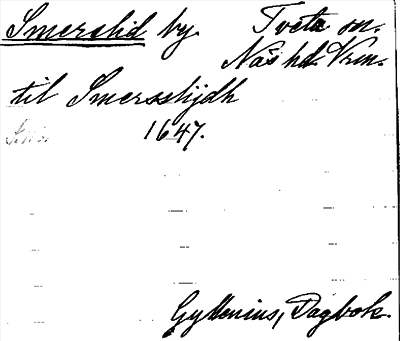 Smerslid by. Tveta sn.
Näs hd. Vrm.
til Smersslijdh
1647.
Gyllenius, Dagbok.